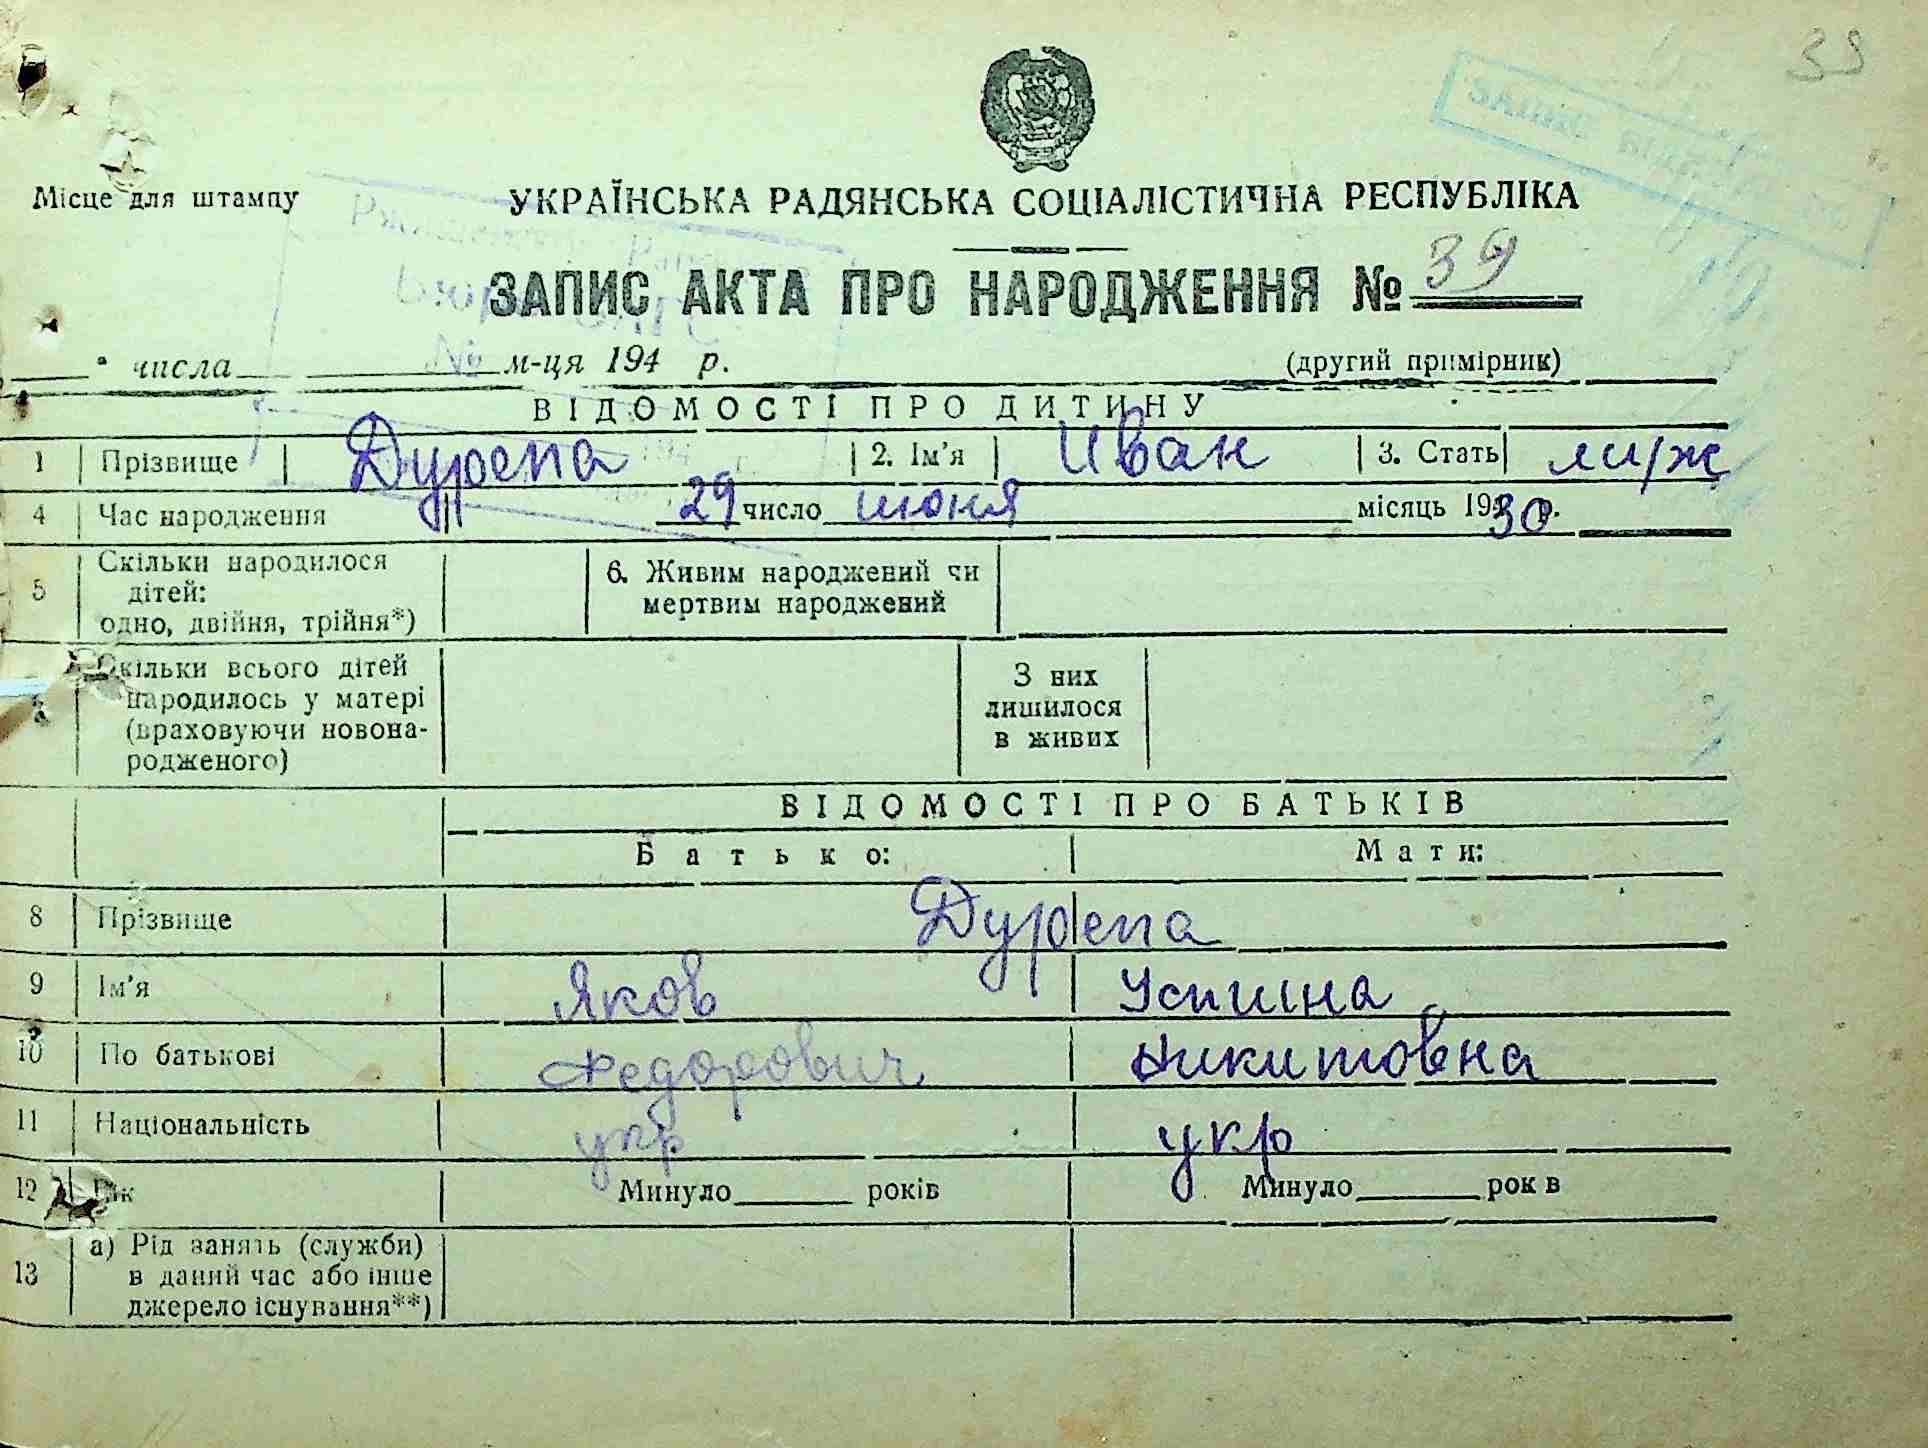 39
Місце для штампу
УКРАЇНСЬКА РАДЯНСЬКА СОЦІАЛІСТИЧНА РЕСПУБЛІКА
ЗАПИС АКТА ПРО НАРОДЖЕННЯ № 39
" числа м-ця 194 р.
(другий примірник)
ВІДОМОСТІ ПРО ДИТИНУ
1 Прізвище Дурепа 2. Ім'я Иван 3. Стать муж
4 Час народження 29 число июня місяць 1930 р.
5 Скільки народилося дітей: одно, двійня, трійня*) 6. Живим народжений чи мертвим народжений
Скільки всього дітей народилось у матері (враховуючи новонародженого) З них лишилося в живих
ВІДОМОСТІ ПРО БАТЬКІВ
Батько: Мати:
8 Прізвище Дурепа
9 Ім'я Яков Устина
10 По батькові Федорович Никитовна
11 Національність укр укр
12 Вік Минуло років Минуло рок в
13 а) Рід занять (служби) в даний час або інше джерело існування**)